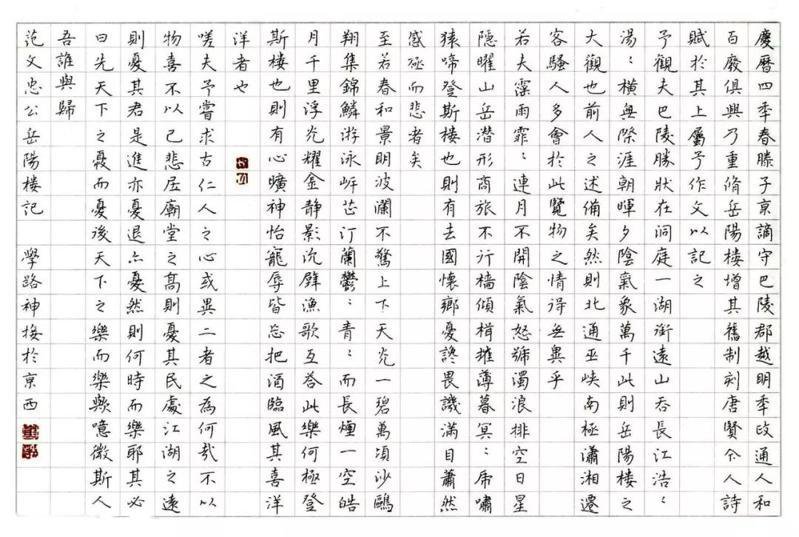 慶曆四年春滕子京謫守巴陵郡越明年政通人和
百廢俱興乃重脩岳陽樓增其舊制刻唐賢今人詩
賦於其上屬予作文以記之
予觀夫巴陵勝狀在洞庭一湖銜遠山吞長江浩:
湯:橫無際涯朝暉夕陰氣象萬千此則岳陽樓之
大觀也前人之述備矣然則北通巫峽南極瀟湘遷
客騷人多會於此覽物之情得無異乎
若夫霪雨霏:連月不開陰氣怒號濁浪排空日星
隱曜山岳潛形商旅不行檣傾楫摧薄暮冥:虎嘯
猿啼登斯樓也則有去國懷鄉憂讒畏譏滿目蕭然
感極而悲者矣
至若春和景明波瀾不驚上下天光一碧萬頃沙鷗
翔集錦鱗游泳岸芷汀蘭鬱:青:而長煙一空皓
月千里浮光耀金靜影沉璧漁歌互答此樂何極登
斯樓也則有心曠神怡寵辱皆忘把酒臨風其喜洋
洋者也
嗟夫予嘗求古仁人之心或異二者之為何哉不以
物喜不以己悲居廟堂之高則憂其民處江湖之遠
則憂其君是進亦憂退亦憂然則何時而樂耶其必
曰先天下之憂而憂後天下之樂而樂歟噫微斯人
吾誰與歸
范文忠公岳陽樓記 學路神接於京西